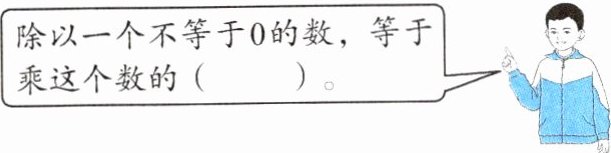 除以一个不等于0的数，等于
乘这个数的（　　　）。